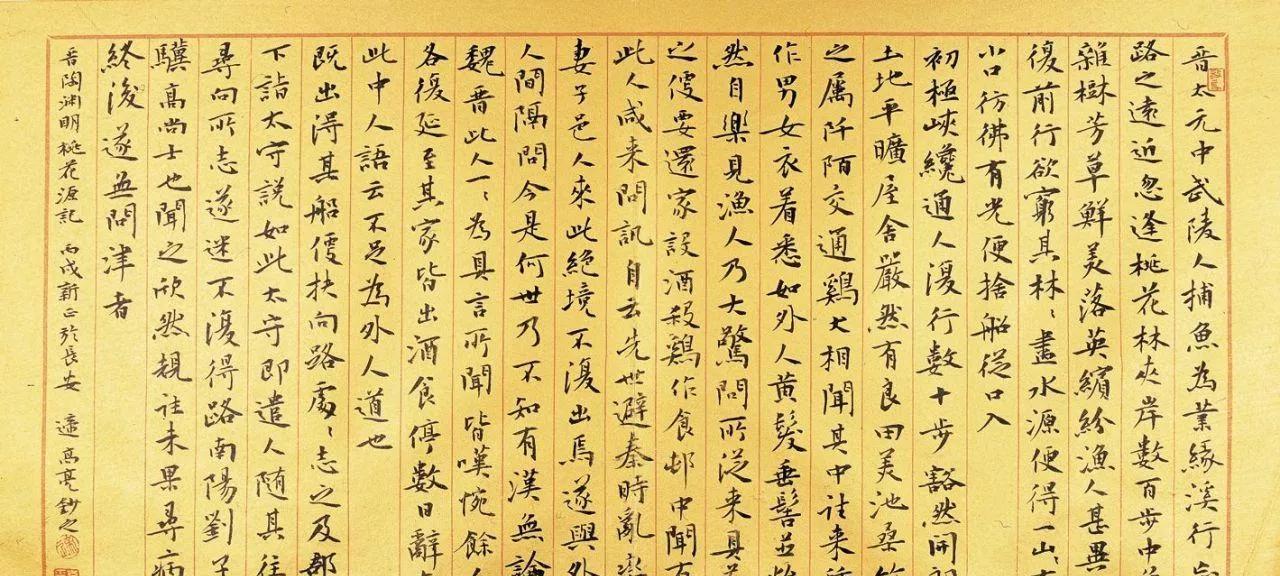 晉太元中武陵人捕魚為業緣溪行
路之遠近忽逢桃花林夾岸數百步中
雜樹芳草鮮美落英繽紛漁人甚異
復前行欲窮其林〻盡水源便得一山〻
小口彷彿有光便捨船從口入
初極峽纔通人復行數十步豁然開
土地平曠屋舍嚴然有良田美池桑
之屬阡陌交通鷄犬相聞其中往來
作男女衣着悉如外人黃髮垂髫並怡
然自樂見漁人乃大驚問所從來具
之便要還家設酒殺鷄作食邨中聞
此人咸來問訊自云先世避秦時亂率
妻子邑人來此絕境不復出焉遂與外
人間隔問今是何世乃不知有漢無論
魏晉此人一〻為具言所聞皆嘆惋餘人
各復延至其家皆出酒食停數日辭
此中人語云不足為外人道也
既出得其船便扶向路處〻志之及郡
下詣太守說如此太守即遣人隨其往
尋向所志遂迷不復得路南陽劉子
驥高尚士也聞之欣然規往未果尋病
終後遂無問津者
晉陶淵明桃花源記 丙戌新正於長安 高亮鈔之